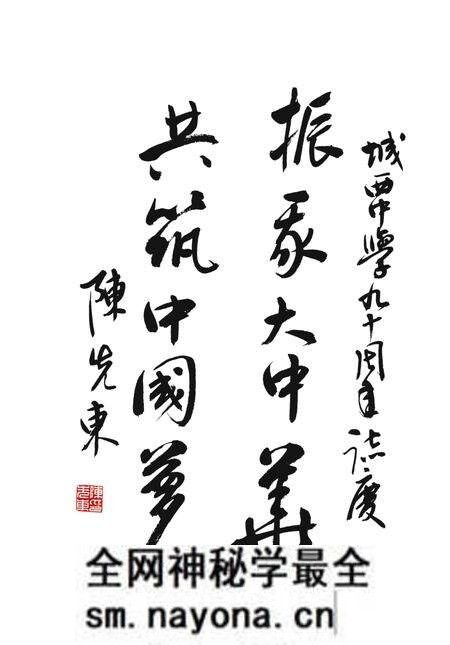 城西中學九十周年誌慶
振我大中華
共筑中國夢
陳先東
全网神秘学最全
sm.nayona.cn